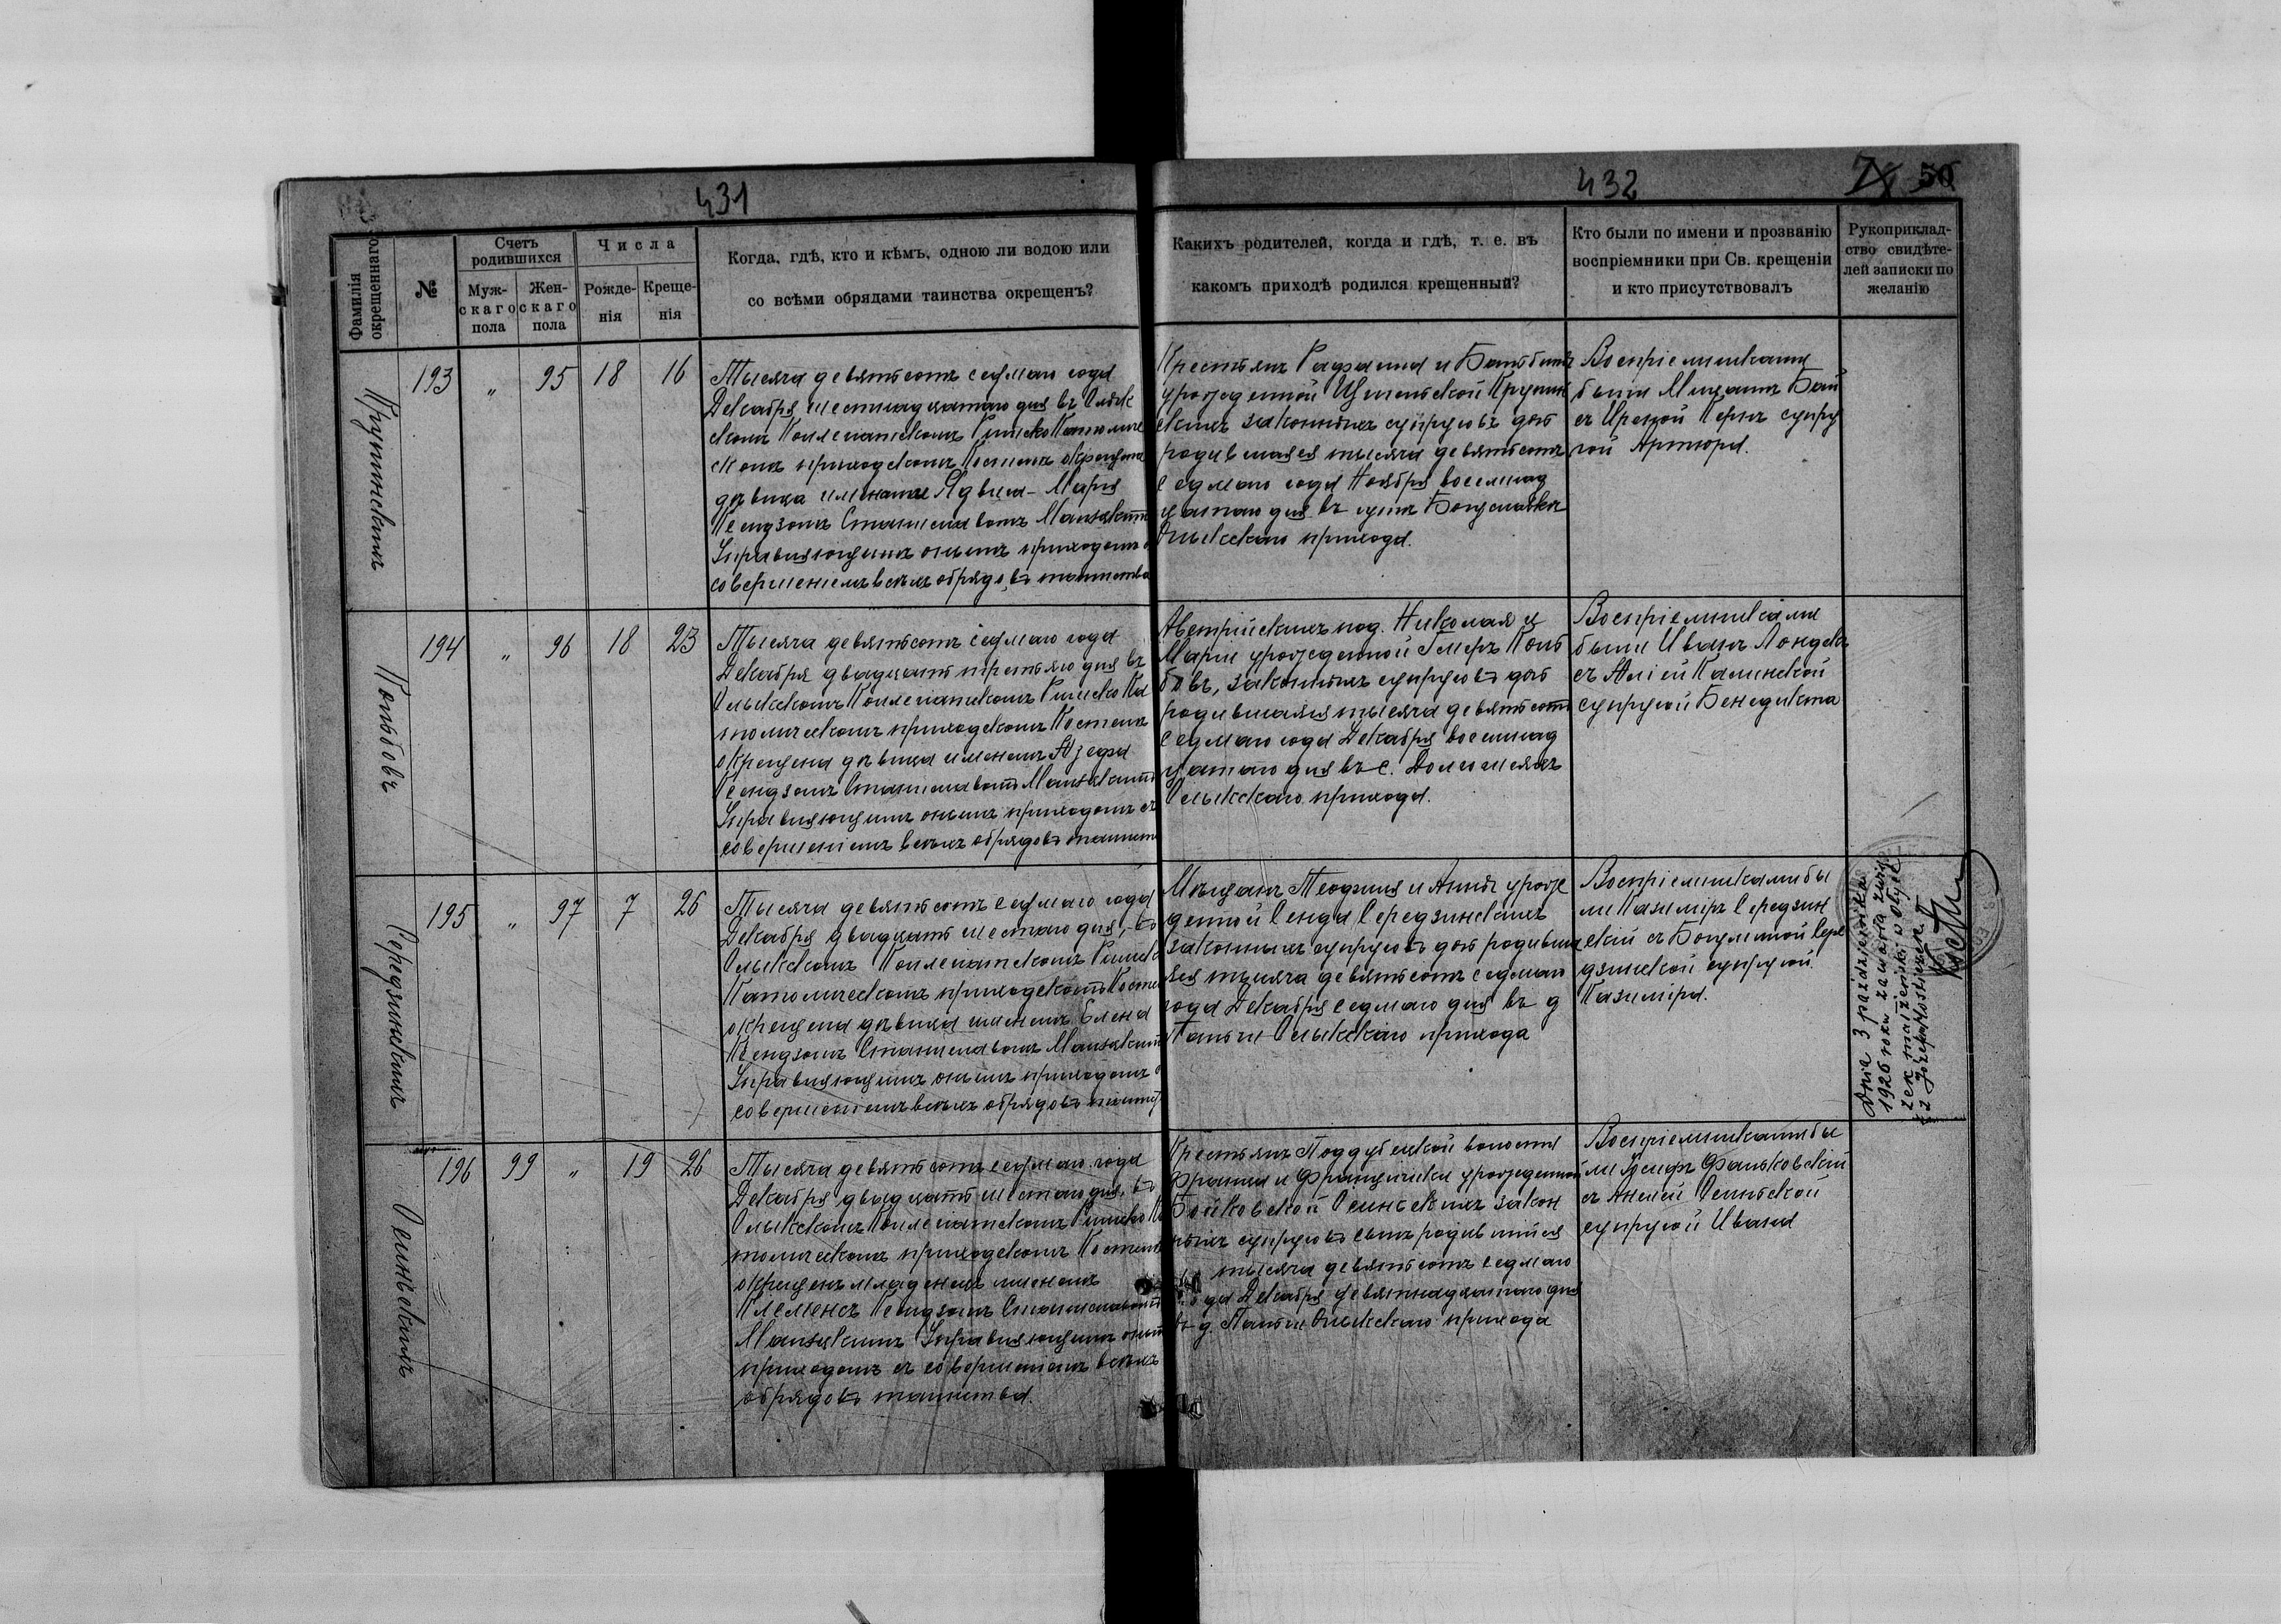 431
Фамилія окрещеннаго
№
Счетъ родившихся
Мужскаго пола
Женскаго пола
Числа
Рожденія
Крещенія
Когда, гдѣ, кто и кѣмъ, одною ли водою или
со всѣми обрядами таинства окрещенъ?
432
50
Какихъ родителей, когда и гдѣ, т. е. въ
какомъ приходѣ родился крещенный?
Кто были по имени и прозванію
воспріемники при Св. крещеніи
и кто присутствовалъ
Рукоприклад-
ство свидѣте-
лей записки по
желанію
193 " 95 18 16
Тысяча девятьсотъ седьмаго года
Декабря шестнадцатаго дня въ Олык
скомъ Коллегіатскомъ Римско Католиче
скомъ приходскомъ Костелѣ окрещена
дѣвица именами Марія
Ксендзомъ Станиславомъ
Управляющимъ онымъ приходомъ
совершеніемъ всѣхъ обрядовъ таинства
Крестьянъ и
урожденной
законныхъ супруговъ дочь
родившаяся тысяча девятьсотъ
седьмаго года Ноября восемнад
цатаго дня въ
Олыкскаго прихода.
Воспріемниками
были
съ супру
гой
Кольбовъ
194 " 96 18 23
Тысяча девятьсотъ седьмаго года
Декабря двадцать третьяго дня въ
Олыкскомъ Коллегіатскомъ Римско Ка
толическомъ приходскомъ Костелѣ
окрещена дѣвица именемъ Юзефа
Ксендзомъ Станиславомъ
Управляющимъ онымъ приходомъ съ
совершеніемъ всѣхъ обрядовъ таинст
Австрійскихъ под. Николая и
Маріи урожденной Коль
бовъ, законныхъ супруговъ дочь
родившаяся тысяча девятьсотъ
седьмаго года Декабря восемнад
цатаго дня въ с.
Олыкскаго прихода.
Воспріемниками
были Иванъ
съ Калинской
супругой Бенедикта
Середзинскихъ
195 " 97 7 26
Тысяча девятьсотъ седьмаго года
Декабря двадцать шестаго дня, въ
Олыкскомъ Коллегіатскомъ Римско
Католическомъ приходскомъ Косте
окрещена дѣвица именемъ Елена
Ксендзомъ Станиславомъ
Управляющимъ онымъ приходомъ
совершеніемъ всѣхъ обрядовъ таинст
Мѣщанъ Теофила и Анны урож
денной Середзинскихъ
законныхъ супруговъ дочь родивша
яся тысяча девятьсотъ седьмаго
года Декабря седьмаго дня въ д
Олыкскаго прихода
Воспріемниками бы
ли Казиміръ Середзин
скій съ Сере
дзинской супругой
Казиміра.
Dnia 3 października
1926 roku zawarła zwią
zek małżeński w Ołyce
z Józefem
Осиньскихъ
196 99 " 19 26
Тысяча девятьсотъ седьмаго года
Декабря двадцать шестаго дня, въ
Олыкскомъ Коллегіатскомъ Римско Ка
толическомъ приходскомъ Костелѣ
окрещенъ младенецъ именемъ
Клеменсъ Ксендзомъ Станиславомъ
Управляющимъ онымъ
приходомъ съ совершеніемъ всѣхъ
обрядовъ таинства.
Крестьянъ Поддубецкой волости
и Францишки урожденной
Бойковской Осиньскихъ закон
ныхъ супруговъ сынъ родившійся
тысяча девятьсотъ седьмаго
года Декабря девятнадцатаго дня
въ д. Олыкскаго прихода
Воспріемниками бы
ли
съ Осиньской
супругой Ивана